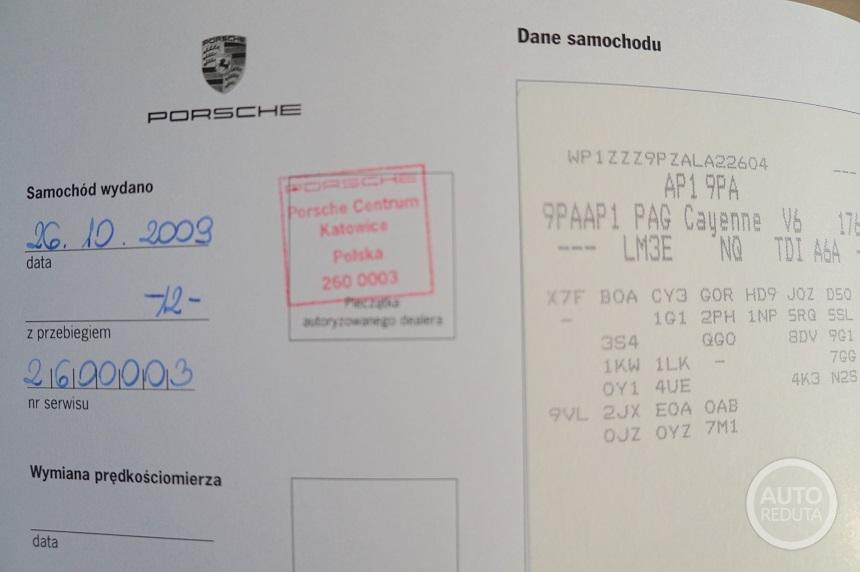 PORSCHE
PORSCHE
Samochód wydano
26.10.2009
data
-12-
z przebiegiem
2600003
nr serwisu
PORSCHE
Porsche Centrum
Katowice
Polska
260 0003
Pieczątka
autoryzowanego dealera
Wymiana prędkościomierza
data
Dane samochodu
WP1ZZZ9PZALA22604 ---
AP1 9PA
9PAAP1 PAG Cayenne V6 176
--- LM3E NQ TDI A6A -
X7F BOA CY3 GOR HD9 JOZ D5O
- 1G1 2PH 1NP 5RQ 5SL
3S4 QGO 8DV 9G1
1KW 1LK - 7GG
OY1 4UE 4K3 N2S
9VL 2JX EOA OAB
OJZ OYZ 7M1
AUTO
REDUTA